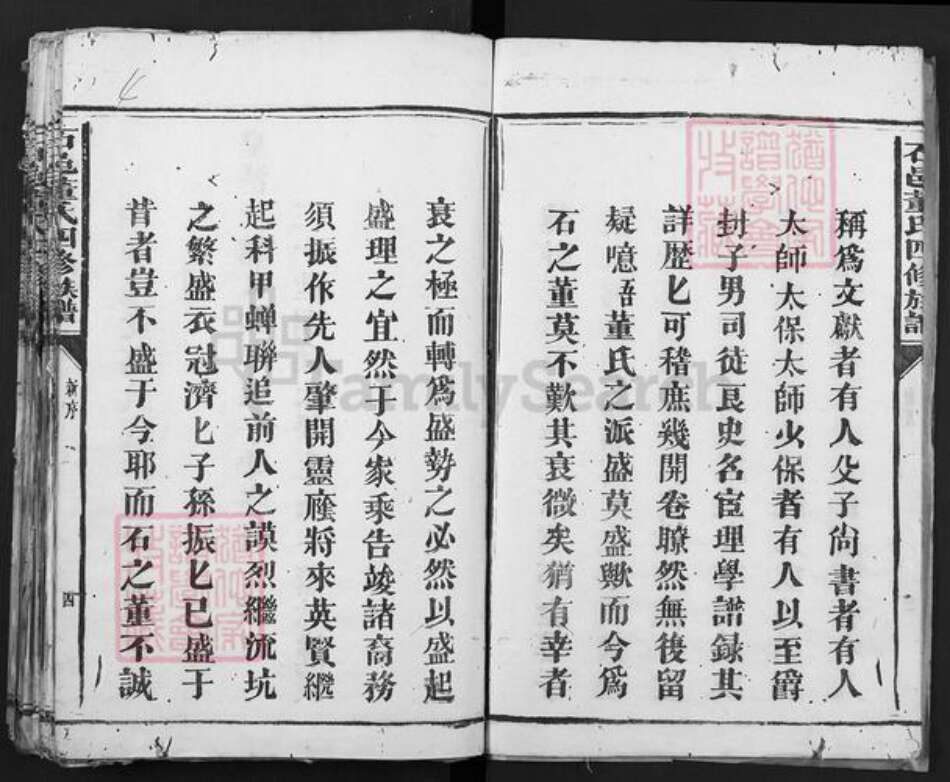 石邑董氏四修族譜
稱爲文獻者有人父子尙書者有人
太師太保太師少保者有人以至爵
封子男司徒良史名宦理學譜録其
詳歷匕可稽庶幾開卷瞭然無後留
疑噫吾董氏之派盛莫盛歟而今爲
石之董莫不歎其衰微矣猶有幸者
衰之極而轉爲盛勢之必然以盛起
盛理之宜然于今家乘告竣諸裔務
須振作先人肇開靈
將來英賢繼
起科甲蟬聯追前人之謨烈繼流坑
之繁盛衣冠濟匕子孫振匕已盛于
昔者豈不盛于今耶而石之董不誠
石邑董氏四修族譜
新序
四
FamilySearch